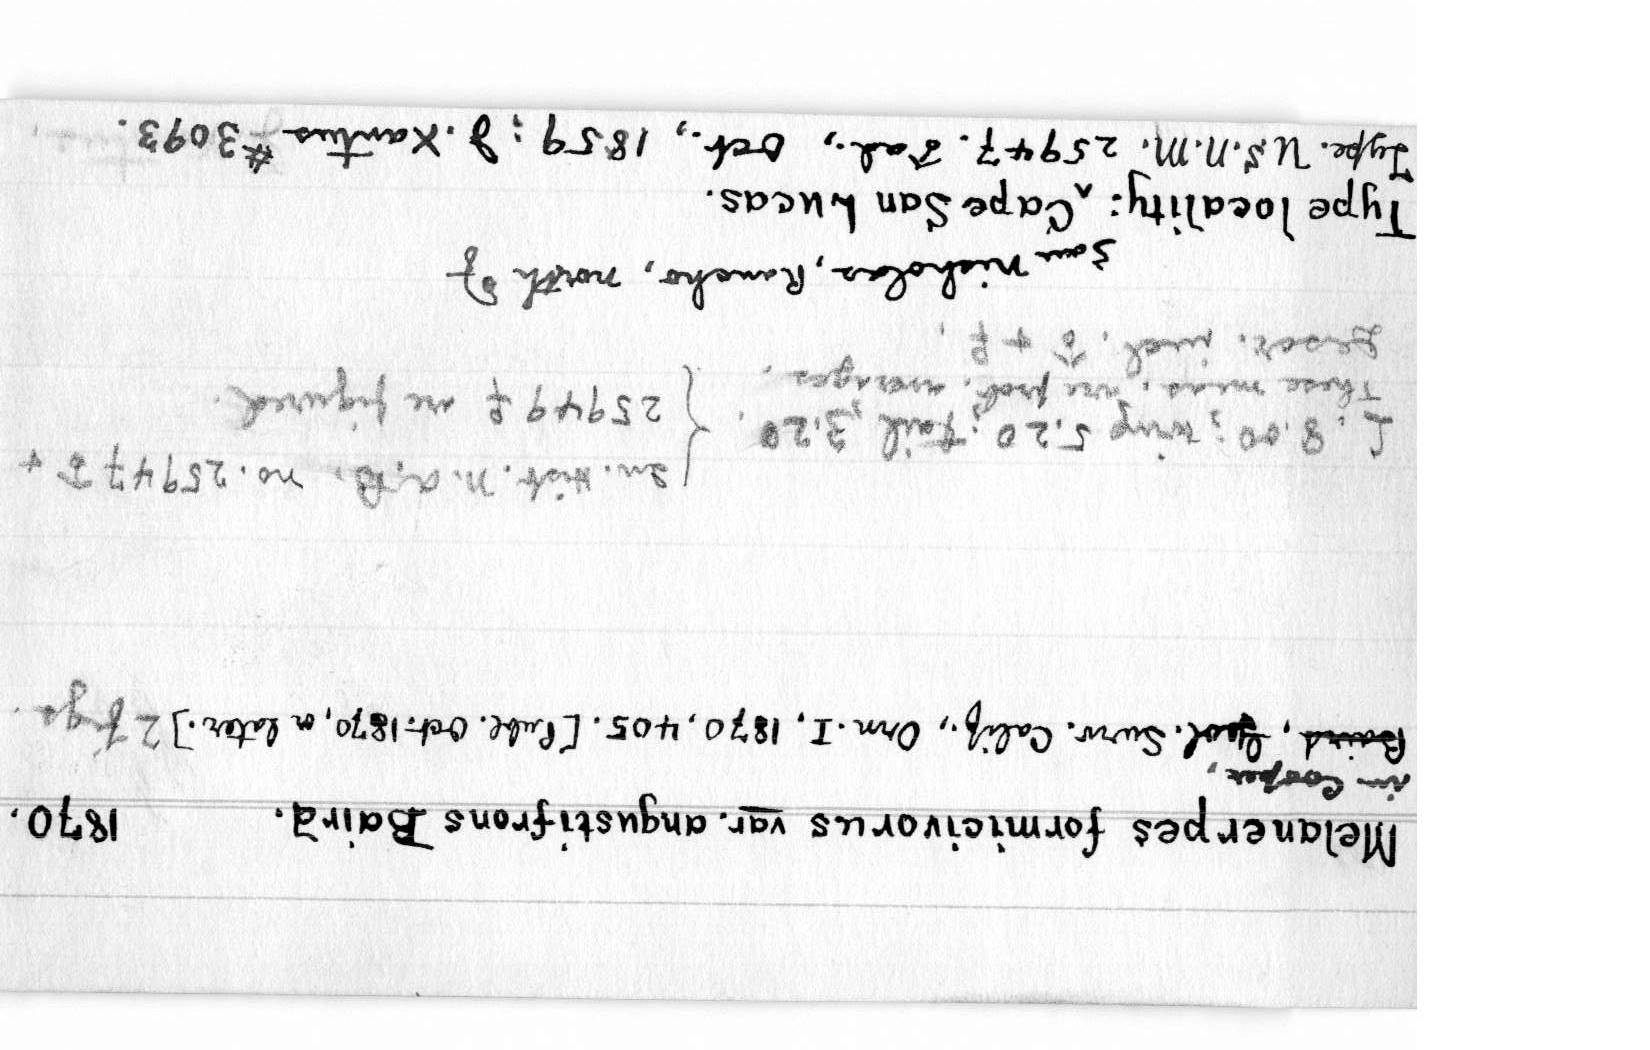 Melanerpes formicivorus var. angustifrons Baird. 1870.
in Cooper,
Baird, Geol. Surv. Calif., Orn. I, 1870, 405. [Publ. Oct. 1870, or later.] 2 figs.
In. Hist. N.A.B. no. 25947 ♂ +
25949 ♀ are figured.
L. 8.00; wing 5.20; tail 3.20.
These meas. are prob. averages,
descr. incl. ♂ + ♀,
San Nicholas, Rancho, north of
Type locality: ^ Cape San Lucas.
Type. U.S.N.M. 25947. ♂ad., Oct., 1859; J. Xantus #3093.